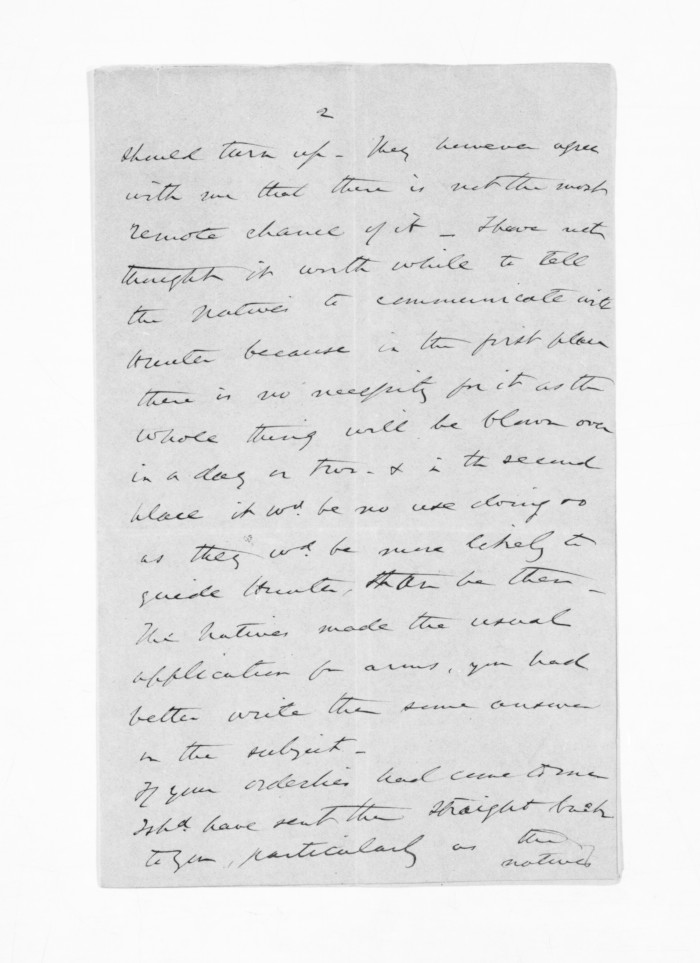 2
should turn up - They however agree
with me that there is not the most
remote chance of it - I have not
thought it worth while to tell
the Natives to communicate with
Hunter because in the first place
there is no necessity for it as the
whole thing will be blown over
in a day or two - & in the second
place it wd. be no use doing so
as they wd. be more likely to
guide Hunter, than be then -
The Natives made the usual
application for arms, you had
better write them some answer
on the subject -
If your orderlies had come to me
I shd. have sent them straight back
to you, particularly as the
natives